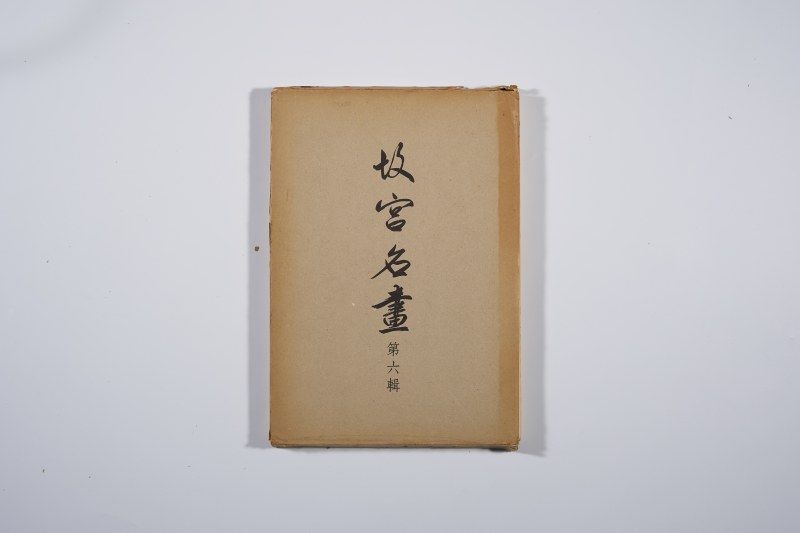 故宮名畫
第六輯